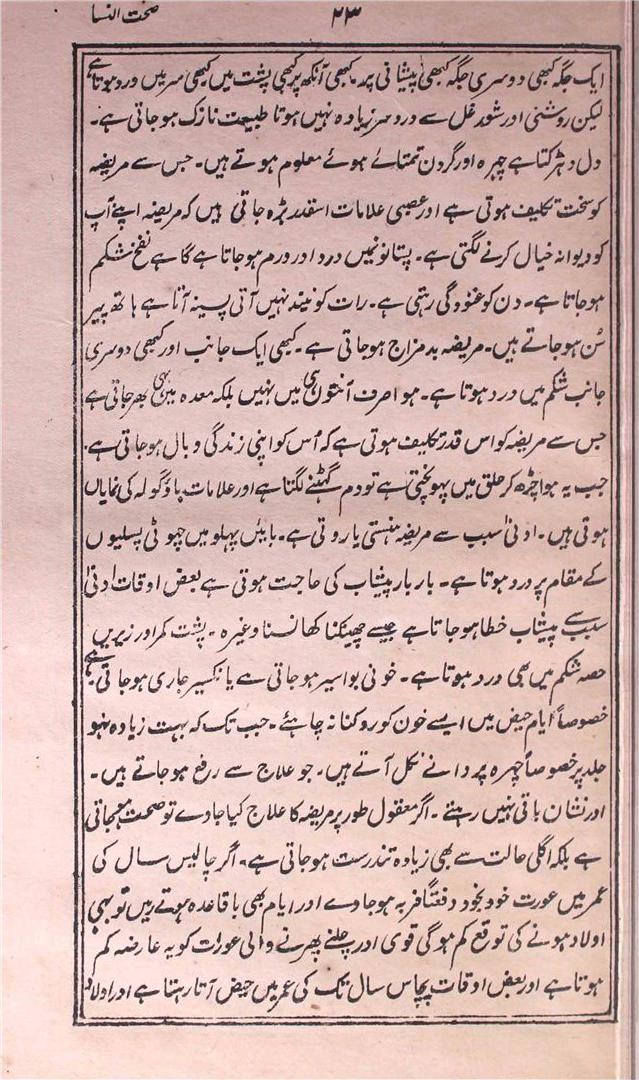 ۲۳
صحت النسا
ایک جگہ کبھی دوسری جگہ کبھی پیشانی پر۔ کبھی آنکھ پر کبھی پشت میں کبھی سر میں درد ہوتا ہے
لیکن روشنی اور شور غل سے درد سر زیادہ نہیں ہوتا طبیعت نازک ہو جاتی ہے۔
دل دھڑکتا ہے چہرہ اور گردن تمتمائے ہوئے معلوم ہوتے ہیں۔ جس سے مریضہ
کو سخت تکلیف ہوتی ہے اور عصبی علامات اسقدر بڑہ جاتی ہیں کہ مریضہ اپنے آپ
کو دیوانہ خیال کرنے لگتی ہے۔ پستانونمیں درد اور ورم ہو جاتا ہے گاہے نفخ شکم
ہو جاتا ہے۔ دن کو غنودگی رہتی ہے۔ رات کو نیند نہیں آتی پسینہ آتا ہے ہاتھ پیر
سُن ہو جاتے ہیں۔ مریضہ بدمزاج ہو جاتی ہے۔ کبھی ایک جانب اور کبھی دوسری
جانب شکم میں درد ہوتا ہے۔ ہوا صرف آنتوں ہی میں نہیں بلکہ معدہ میں بہی بھر جاتی ہے
جس سے مریضہ کو اس قدر تکلیف ہوتی ہے کہ اُس کو اپنی زندگی وبال ہو جاتی ہے۔
جب یہ ہوا چڑھ کر حلق میں پہونچتی ہے تو دم گہٹنے لگتا ہے اور علامات باؤ گولہ کی نمایاں
ہوتی ہیں۔ ادنیٰ سبب سے مریضہ ہنستی یا روتی ہے۔ بائیں پہلو میں چھوٹی پسلیوں
کے مقام پر درد ہوتا ہے۔ بار بار پیشاب کی حاجت ہوتی ہے بعض اوقات ادنیٰ
سبب سے پیشاب خطا ہو جاتا ہے جیسے چھینکنا کھانسنا وغیرہ۔ پشت کمر اور زیریں
حصہ شکم میں بھی درد ہوتا ہے۔ خونی بواسیر ہو جاتی ہے یا نکسیر جاری ہو جاتی ہے
خصوصاً ایام حیض میں ایسے خون کو روکنا نہ چاہئے۔ جب تک کہ بہت زیادہ نہو
جلد پر خصوصاً چہرہ پر دانے نکل آتے ہیں۔ جو علاج سے رفع ہو جاتے ہیں۔
اور نشان باقی نہیں رہتے۔ اگر معقول طور پر مریضہ کا علاج کیا جاوے تو صحت ہو جاتی
ہے بلکہ اگلی حالت سے بھی زیادہ تندرست ہو جاتی ہے۔ اگر چالیس سال کی
عمر میں عورت خود بخود دفعتاً فربہ ہو جاوے اور ایام بھی باقاعدہ ہوتے رہیں تو بہی
اولاد ہونے کی توقع کم ہوگی قوی اور چلنے پھرنے والی عورات کو یہ عارضہ کم
ہوتا ہے اور بعض اوقات پچاس سال تک کی عمر میں حیض آتا رہتا ہے اور اولاد